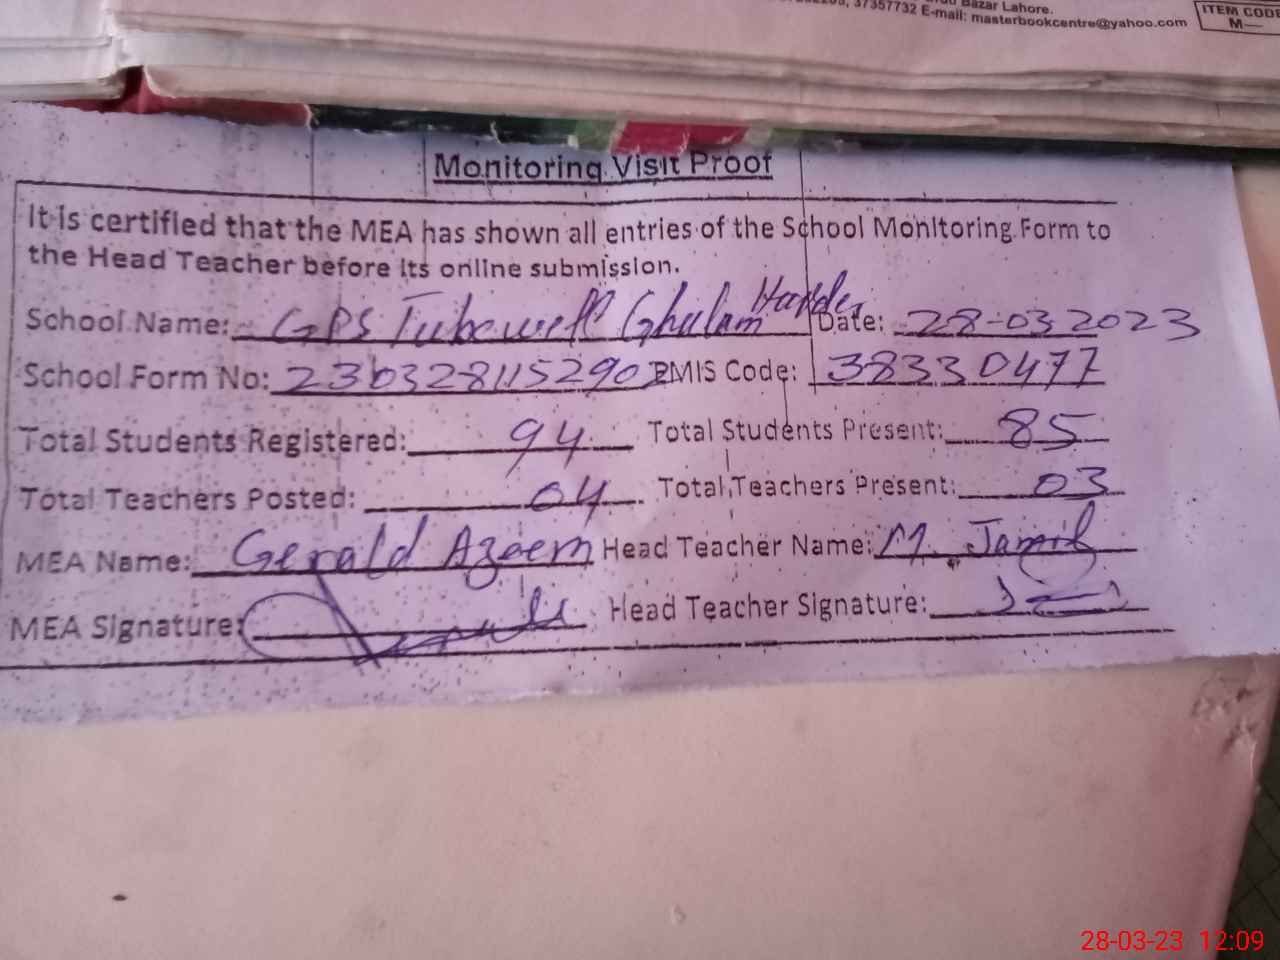 Bazar Lahore.
37357732 E-mail: masterbookcentre@yahoo.com
ITEM CODE
M—
Monitoring Visit Proof
It is certified that the MEA has shown all entries of the School Monitoring Form to
the Head Teacher before its online submission.
School Name: GPS Tubewell Ghulam Haider Date: 28-03-2023
School Form No: EMIS Code: 38330477
Total Students Registered: 94 Total Students Present: 85
Total Teachers Posted: 04 Total Teachers Present: 03
MEA Name: Gerald Azeem Head Teacher Name: M. Jamil
MEA Signature: Head Teacher Signature:
28-03-23 12:09